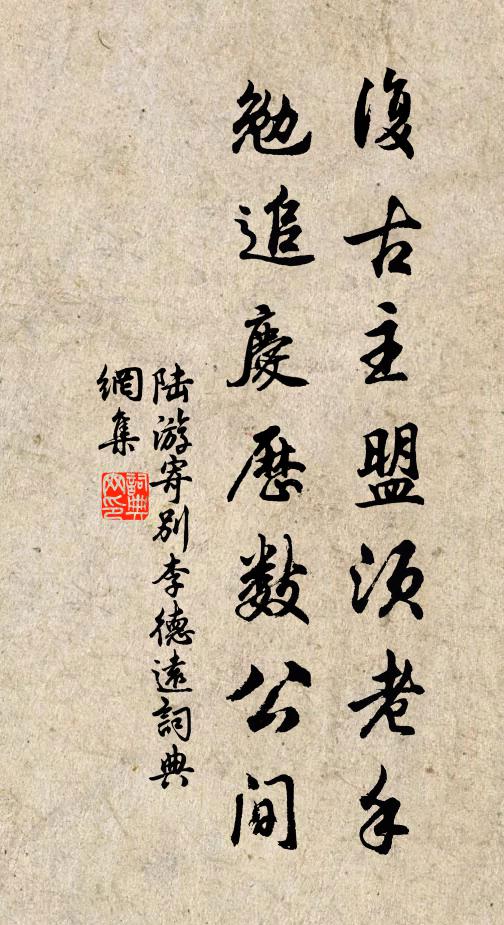 復古主盟須老手
勉追慶歷數公間
陸游寄別李德遠詞典
網集
詞典
网印